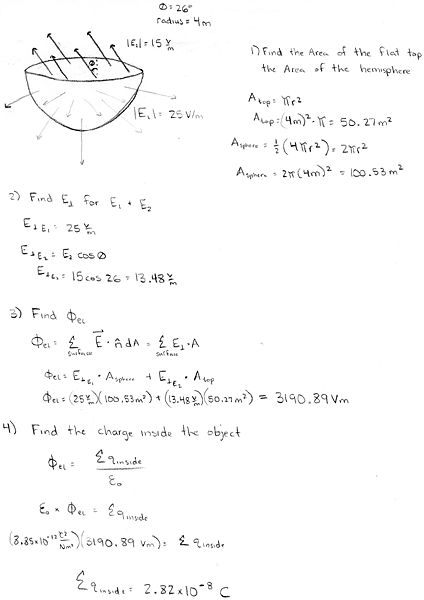 Θ = 26°
radius = 4m
|E₂| = 15 V/m
θ
|E₁| = 25 V/m
1) Find the Area of the flat top
the Area of the hemisphere
A top = πr²
A top = (4m)² · π = 50.27m²
A sphere = 1/2 (4πr²) = 2πr²
A sphere = 2π(4m)² = 100.53m²
2) Find E⊥ for E₁ + E₂
E⊥E₁ = 25 V/m
E⊥E₂ = E₂ cos Θ
E⊥E₂ = 15 cos 26 = 13.48 V/m
3) Find Φel
Φel = Σ surface E⃗ · n̂ dA = Σ surface E⊥ · A
Φel = E⊥E₁ · A sphere + E⊥E₂ · A top
Φel = (25 V/m)(100.53m²) + (13.48 V/m)(50.27m²) = 3190.89 Vm
4) Find the charge inside the object
Φel = Σq inside / ε₀
ε₀ × Φel = Σq inside
(8.85x10⁻¹² C²/Nm²)(3190.89 Vm) = Σq inside
Σq inside = 2.82 x 10⁻⁸ C